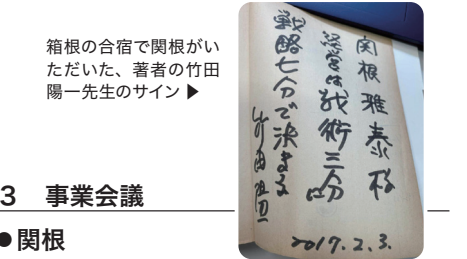 箱根の合宿で関根がい
ただいた、著者の竹田
陽一先生のサイン ▶
関根雅泰様
経営は戦術三分
戦略七分で決まる
竹田陽一
2017.2.3.
3 事業会議
●関根